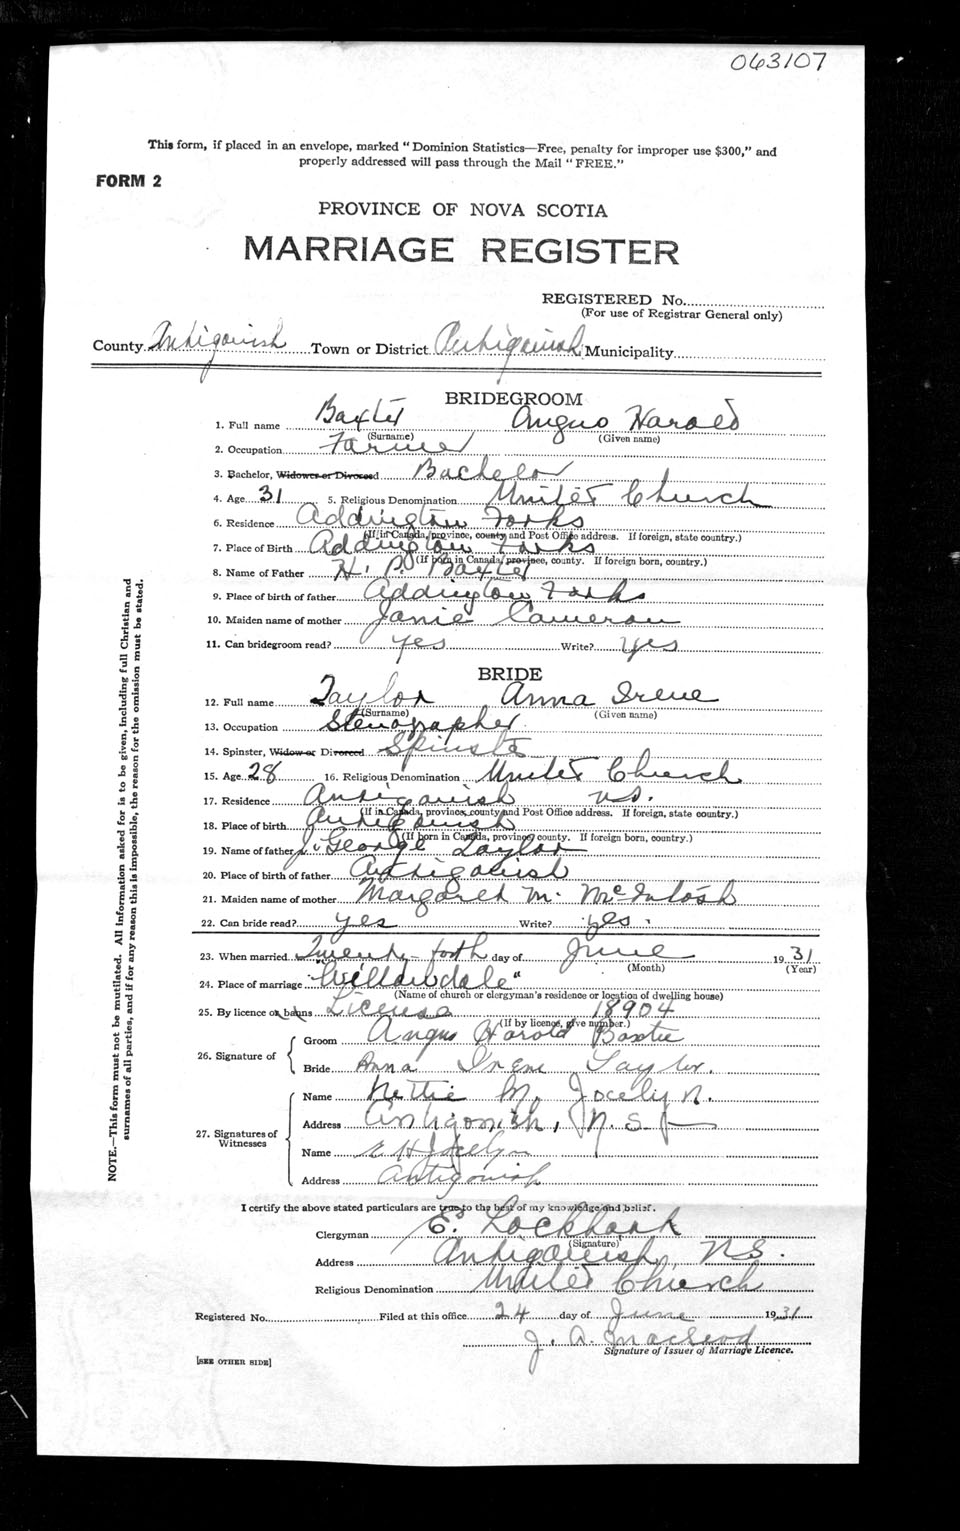 063107
This form, if placed in an envelope, marked "Dominion Statistics—Free, penalty for improper use $300," and
properly addressed will pass through the Mail "FREE."
FORM 2
PROVINCE OF NOVA SCOTIA
MARRIAGE REGISTER
REGISTERED No.
(For use of Registrar General only)
County Antigonish Town or District Antigonish Municipality
BRIDEGROOM
1. Full name Baxter Angus Harold
(Surname) (Given name)
2. Occupation Farmer
3. Bachelor, Widower or Divorced Bachelor
4. Age 31 5. Religious Denomination United Church
6. Residence Addington Forks
(If in Canada, province, county and Post Office address. If foreign, state country.)
7. Place of Birth Addington Forks
(If born in Canada, province, county. If foreign born, country.)
8. Name of Father H. P. Baxter
9. Place of birth of father Addington Forks
10. Maiden name of mother Janie Cameron
11. Can bridegroom read? yes Write? yes
BRIDE
12. Full name Taylor Anna Irene
(Surname) (Given name)
13. Occupation Stenographer
14. Spinster, Widow or Divorced Spinster
15. Age 28 16. Religious Denomination United Church
17. Residence Antigonish N.S.
(If in Canada, province, county and Post Office address. If foreign, state country.)
18. Place of birth Antigonish
(If born in Canada, province, county. If foreign born, country.)
19. Name of father J. George Taylor
20. Place of birth of father Antigonish
21. Maiden name of mother Margaret M. McIntosh
22. Can bride read? yes Write? yes.
23. When married Twenty-forth day of June 1931
(Month) (Year)
24. Place of marriage "Willowdale"
(Name of church or clergyman's residence or location of dwelling house)
25. By licence or banns License 18904
(If by licence, give number.)
26. Signature of
Groom Angus Harold Baxter
Bride Anna Irene Taylor.
27. Signatures of Witnesses
Name Nettie M. Jocelyn.
Address Antigonish, N.S.
Name E H Jocelyn
Address Antigonish
I certify the above stated particulars are true to the best of my knowledge and belief.
Clergyman E. Lockhart
(Signature)
Address Antigonish, N.S.
Religious Denomination United Church
Registered No. Filed at this office 24 day of June 1931
J. A. MacLeod
Signature of Issuer of Marriage Licence.
[SEE OTHER SIDE]
NOTE.—This form must not be mutilated. All information asked for is to be given, including full Christian and
surnames of all parties, and if for any reason this is impossible, the reason for the omission must be stated.